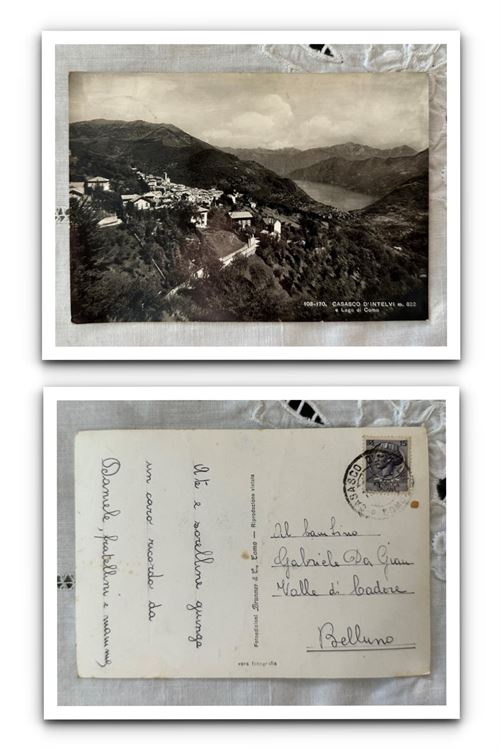 108-170. CASASCO D'INTELVI m. 822
e Lago di Como
A te e sorelline giunga
un caro ricordo da
Daniele, fratellini e mamma
Fotoedizioni Brunner & C., Como — Riproduzione vietata
vera fotografia
CASASCO
Al bambino
Gabriele Da Gian
Valle di Cadore
Belluno